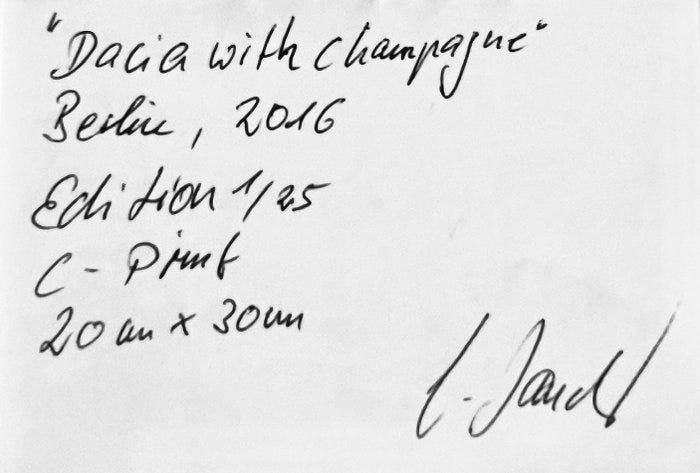 "Dacia with Champagne"
Berlin, 2016
Edition 1/25
C - Print
20cm x 30cm